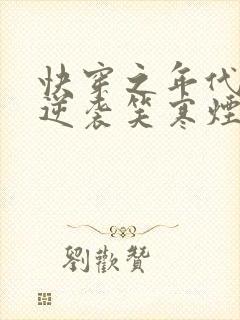 快穿之年代
逆袭笑寒烟
劉歡贊